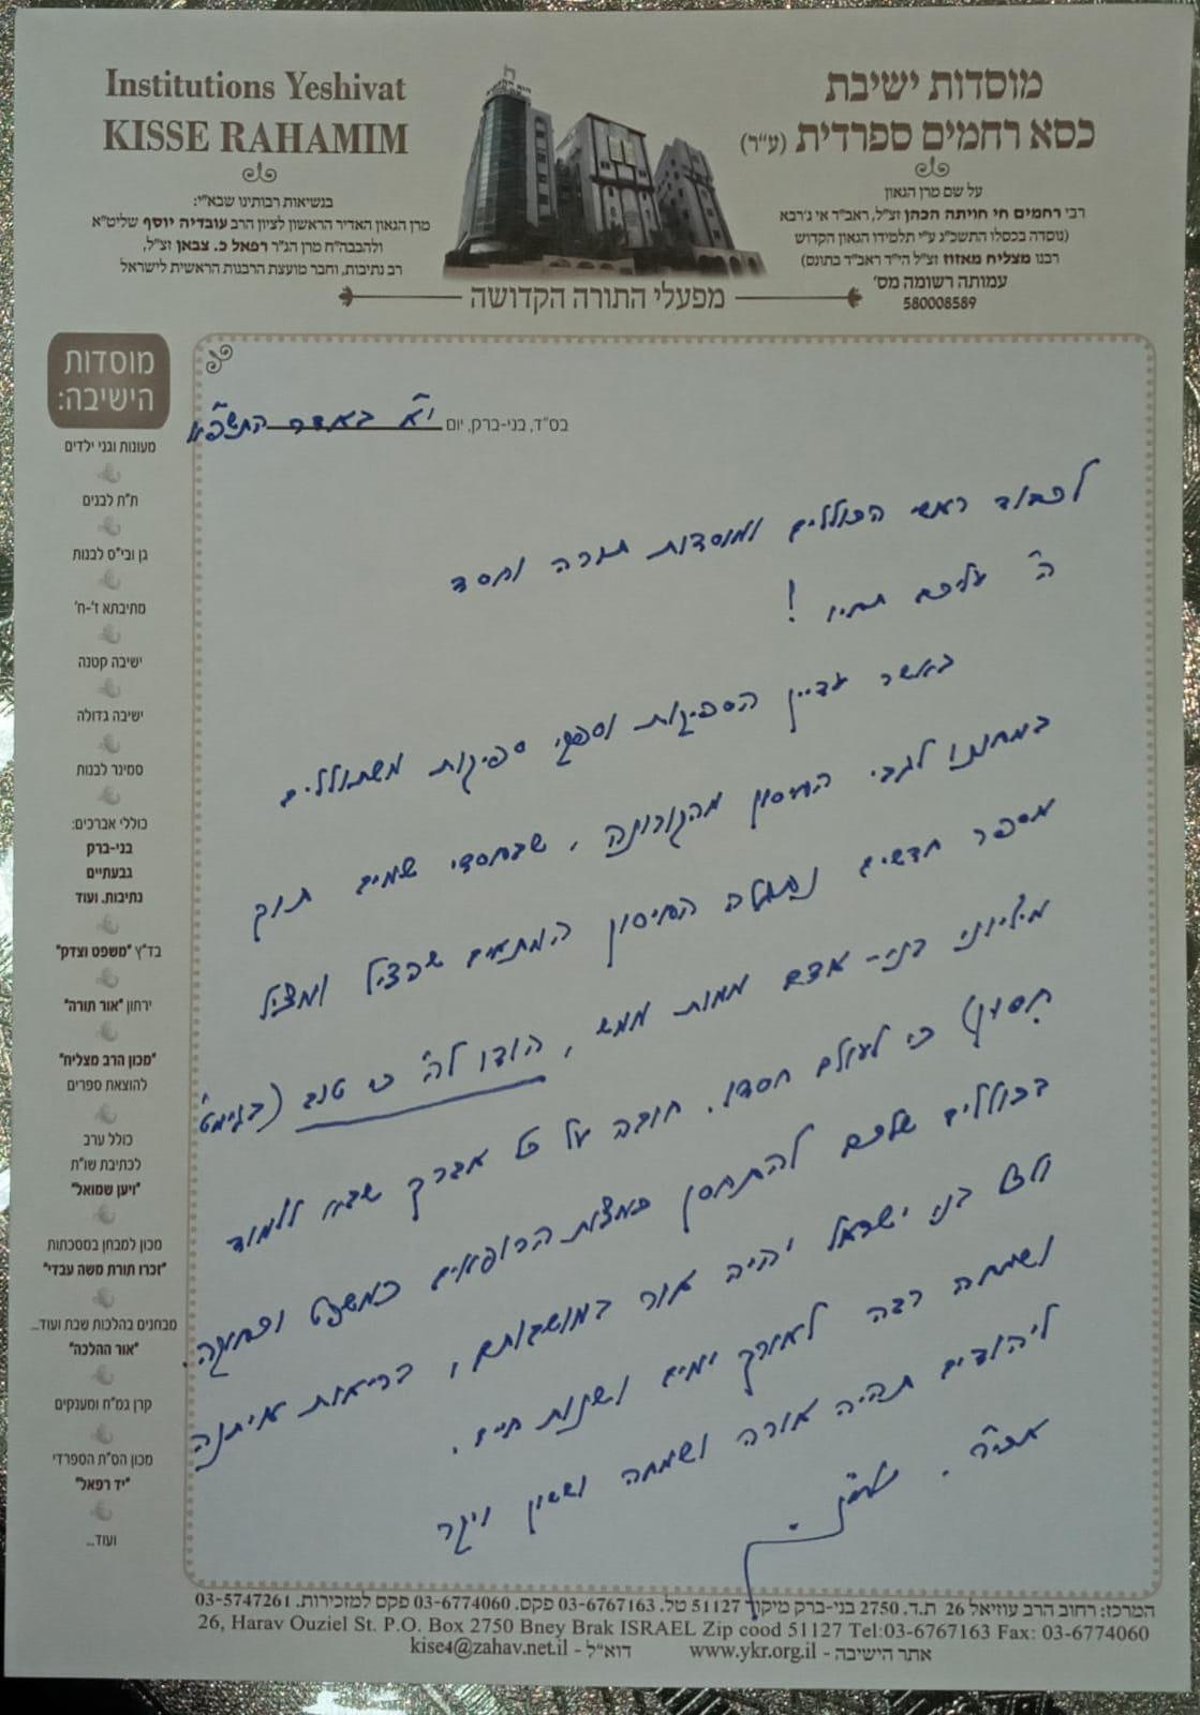 Institutions Yeshivat
KISSE RAHAMIM
בנשיאות רבותינו שבא"י:
מרן הגאון האדיר הראשון לציון הרב עובדיה יוסף שליט"א
ולהבבה"ח מרן הג"ר רפאל כ. צבאן זצ"ל,
רב נתיבות, וחבר מועצת הרבנות הראשית לישראל
מוסדות ישיבת
כסא רחמים ספרדית (ע"ר)
על שם מרן הגאון
רבי רחמים חי חויתה הכהן זצ"ל, ראב"ד אי ג'רבא
(נוסדה בכסלו התשכ"ג ע"י תלמידו הגאון הקדוש
רבנו מצליח מאזוז זצ"ל הי"ד ראב"ד בתונס)
עמותה רשומה מס'
580008589
מפעלי התורה הקדושה
מוסדות
הישיבה:
מעונות וגני ילדים
ת"ת לבנים
גן ובי"ס לבנות
מתיבתא ז'-ח'
ישיבה קטנה
ישיבה גדולה
סמינר לבנות
כוללי אברכים:
בני-ברק
גבעתיים
נתיבות. ועוד
בד"ץ "משפט וצדק"
ירחון "אור תורה"
"מכון הרב מצליח"
להוצאת ספרים
כולל ערב
לכתיבת שו"ת
"ויען שמואל"
מכון למבחן במסכתות
"זכרו תורת משה עבדי"
מבחנים בהלכות שבת ועוד...
"אור ההלכה"
קרן גמ"ח ומענקים
מכון הס"ת הספרדי
"יד רפאל"
ועוד...
בס"ד, בני-ברק, יום י"א באדר התשפ"א
לכבוד ראשי הכוללים ומוסדות תורה וחסד
ה' עליכם יחיו!
באשר עדיין הספיקות וספקי ספיקות משתוללים
במחננו לגבי החיסון מהקורונה, שבחסדי שמים תוך
מספר חדשים נתגלה החיסון המתאים שהציל ומציל
מיליוני בני-אדם ממות ממש, הודו לה' כי טוב (בגימט'
חיסון) כי לעולם חסדו. חובה על כל אברך שבא ללמוד
בכוללים שלכם להתחסן כמצות הרופאים כמשפט וכחוקה.
ולכל בני ישראל יהיה אור במושבותם, בריאות איתנה
ושמחה רבה לאורך ימים ושנות חיים.
ליהודים תהיה אורה ושמחה וששון ויקר
אכי"ר. נאמ"ן
המרכז: רחוב הרב עוזיאל 26 ת.ד. 2750 בני-ברק מיקוד 51127 טל. 03-6767163 פקס. 03-6774060 פקס למזכירות. 03-5747261
26, Harav Ouziel St. P.O. Box 2750 Bney Brak ISRAEL Zip cood 51127 Tel:03-6767163 Fax: 03-6774060
אתר הישיבה - www.ykr.org.il דוא"ל - kise4@zahav.net.il